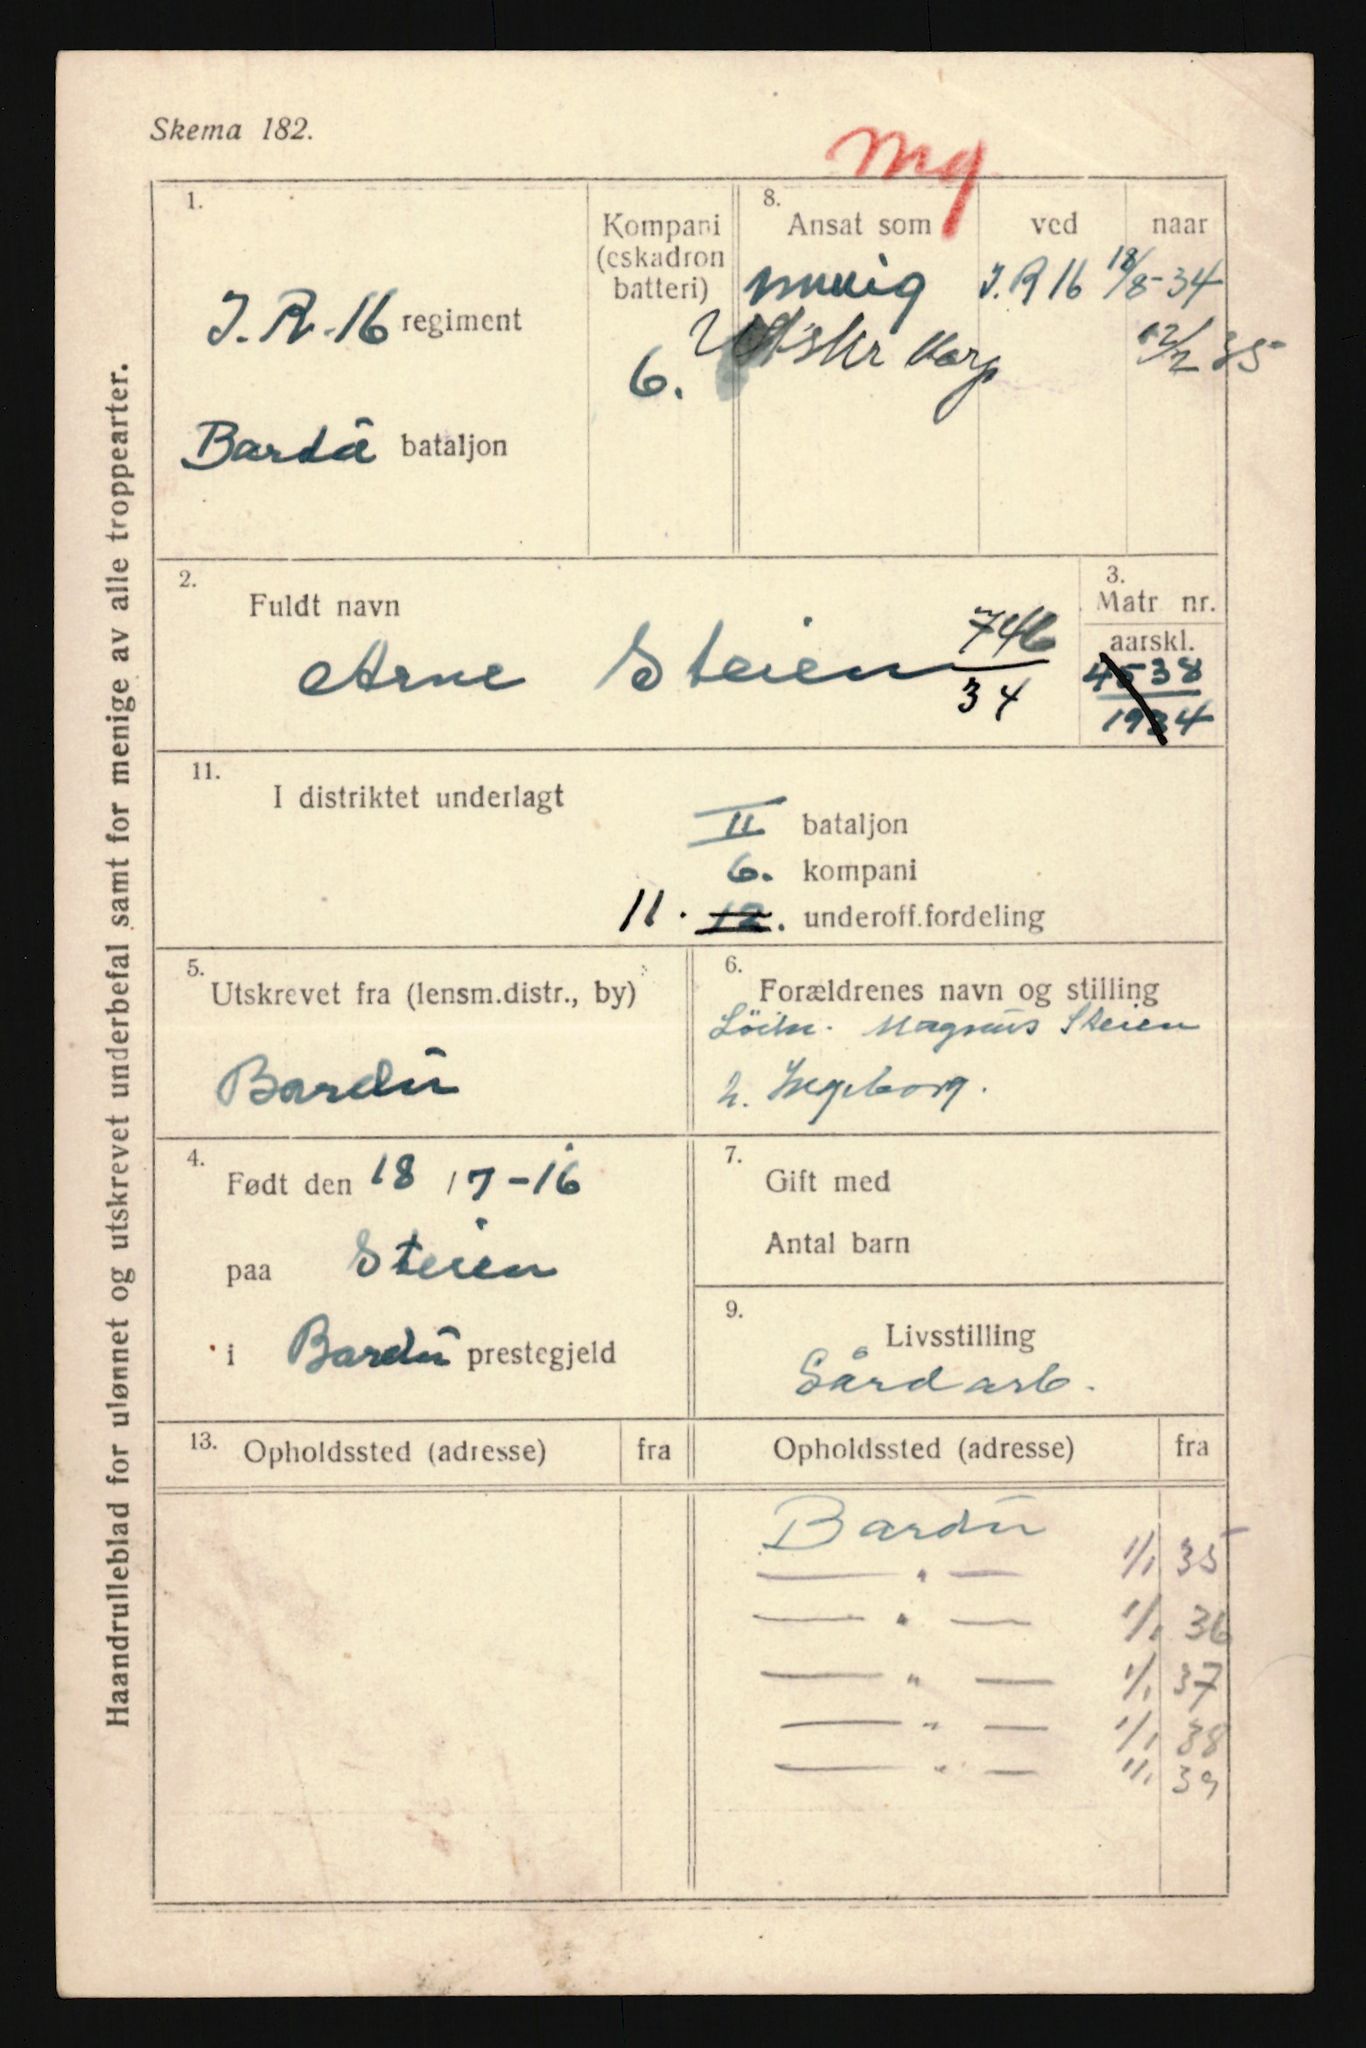 Skema 182.
Mg
Haandrulleblad for ulønnet og utskrevet underbefal samt for menige av alle troppearter.
1.
J. R. 16 regiment
Bardu bataljon
Kompani
(eskadron
batteri)
6.
8.
Ansat som ved naar
menig J.R 16 18/8-34
Utskr Korp 12/2 35
2.
Fuldt navn
Arne Steien 746/34
3.
Matr nr.
aarskl.
4538
1934
11.
I distriktet underlagt
II bataljon
6. kompani
11. 12. underoff.fordeling
5.
Utskrevet fra (lensm.distr., by)
Bardu
6.
Forældrenes navn og stilling
Löitn. Magnus Steien
h. Ingeborg.
4.
Født den 18 / 7-16
paa Steien
i Bardu prestegjeld
7.
Gift med
Antal barn
9.
Livsstilling
Gårdarb.
13. Opholdssted (adresse) fra Opholdssted (adresse) fra
Bardu
— " — 1/1 35
— " — 1/1 36
— " — 1/1 37
— " — 1/1 38
— " — 1/1 39